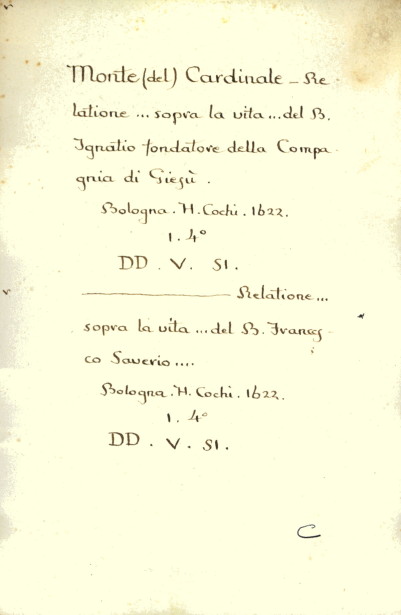 Monte (del) Cardinale - Re
latione ... sopra la vita ... del B.
Ignatio fondatore della Compa
gnia di Giesù.
Bologna. H. Cochi. 1622.
1. 4°
DD. V. SI.
Relatione ...
sopra la vita ... del B. Frances
co Saverio ....
Bologna. H. Cochi. 1622.
1. 4°
DD. V. SI.
C